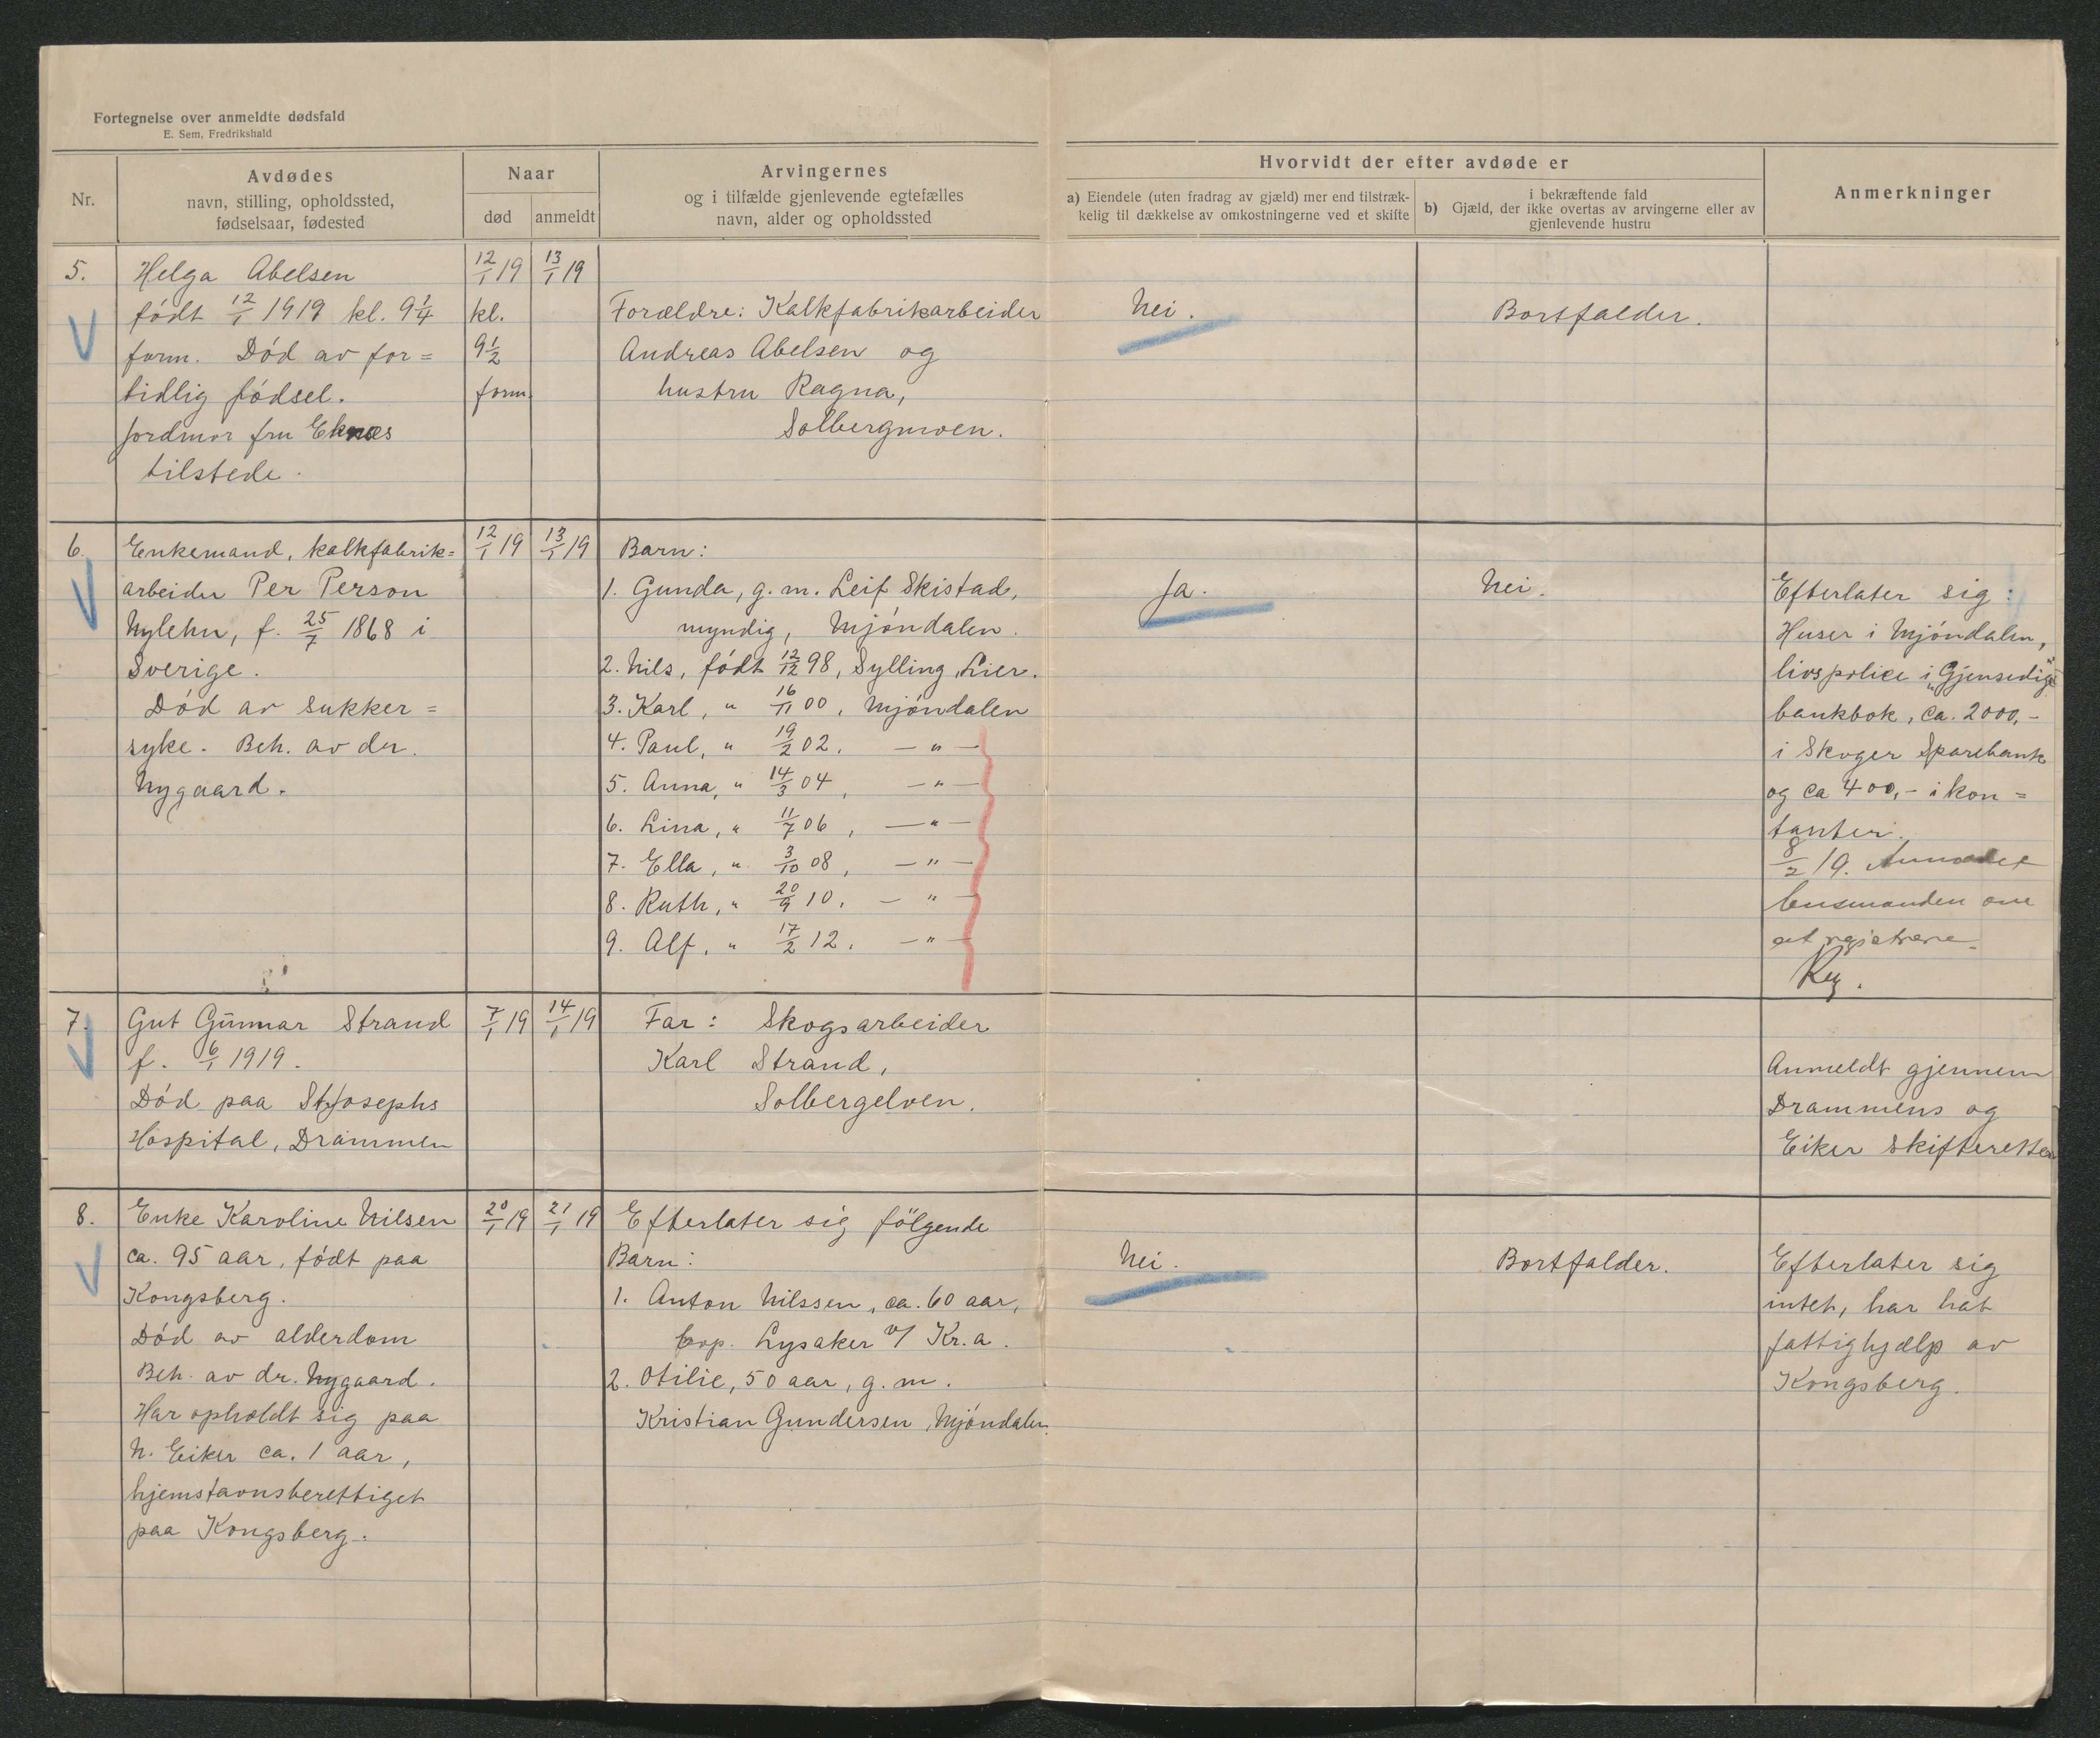 Fortegnelse over anmeldte dødsfald
E. Sem, Fredrikshald
Nr.
Avdødes
navn, stilling, opholdssted,
fødselsaar, fødested
Naar
død
anmeldt
Arvingernes
og i tilfælde gjenlevende egtefælles
navn, alder og opholdssted
Hvorvidt der efter avdøde er
a) Eiendele (uten fradrag av gjæld) mer end tilstræk-
kelig til dækkelse av omkostningerne ved et skifte
i bekræftende fald
b) Gjæld, der ikke overtas av arvingerne eller av
gjenlevende hustru
Anmerkninger
5.
Helga Abelsen
født 12/1 1919 kl. 9 1/4
form. Død av for=
tidlig fødsel.
Jordmor fru Eknes
tilstede.
12/1 19
kl.
9 1/2
form.
13/1 19
Forældre: Kalkfabrikarbeider
Andreas Abelsen og
hustru Ragna,
Solbergmoen.
Nei.
Bortfalder.
6.
Enkemand, kalkfabrik=
arbeider Per Person
Nylehn, f. 25/7 1868 i
Sverige.
Død av sukker=
syke. Beh. av dr.
Nygaard.
12/1 19
13/1 19
Barn:
1. Gunda, g. m. Leif Skistad,
myndig, Mjøndalen.
2. Nils, født 12/12 98, Sylling, Lier.
3. Karl, " 16/11 00, Mjøndalen
4. Paul, " 19/2 02, — " —
5. Anna, " 14/3 04, — " —
6. Lina, " 11/7 06, — " —
7. Ella, " 3/10 08, — " —
8. Ruth, " 20/9 10, — " —
9. Alf, " 17/2 12, — " —
Ja.
Nei.
Efterlater sig:
Huser i Mjøndalen,
livspolice i "Gjensidige"
bankbok, ca. 2000,-
i Skoger Sparebank
og ca 400,- i kon=
tanter.
8/2 19. Anmodet
lensmanden om
at registrere.
7.
Gut Gunnar Strand
f. 6/1 1919.
Død paa St. Josephs
Hospital, Drammen
7/1 19
14/1 19
Far: Skogsarbeider
Karl Strand,
Solbergelven.
Anmeldt gjennem
Drammens og
Eiker Skifteretten
8.
Enke Karoline Nilsen
ca. 95 aar, født paa
Kongsberg.
Død av alderdom
Beh. av dr. Nygaard.
Har opholdt sig paa
N. Eiker ca. 1 aar,
hjemstavnsberettiget
paa Kongsberg.
20/1 19
21/1 19
Efterlater sig følgende
Barn:
1. Anton Nilssen, ca. 60 aar,
Lysaker v/ Kr.a.
2. Otilie, 50 aar, g. m.
Kristian Gundersen, Mjøndalen.
Nei.
Bortfalder.
Efterlater sig
intet, har hat
fattighjælp av
Kongsberg.